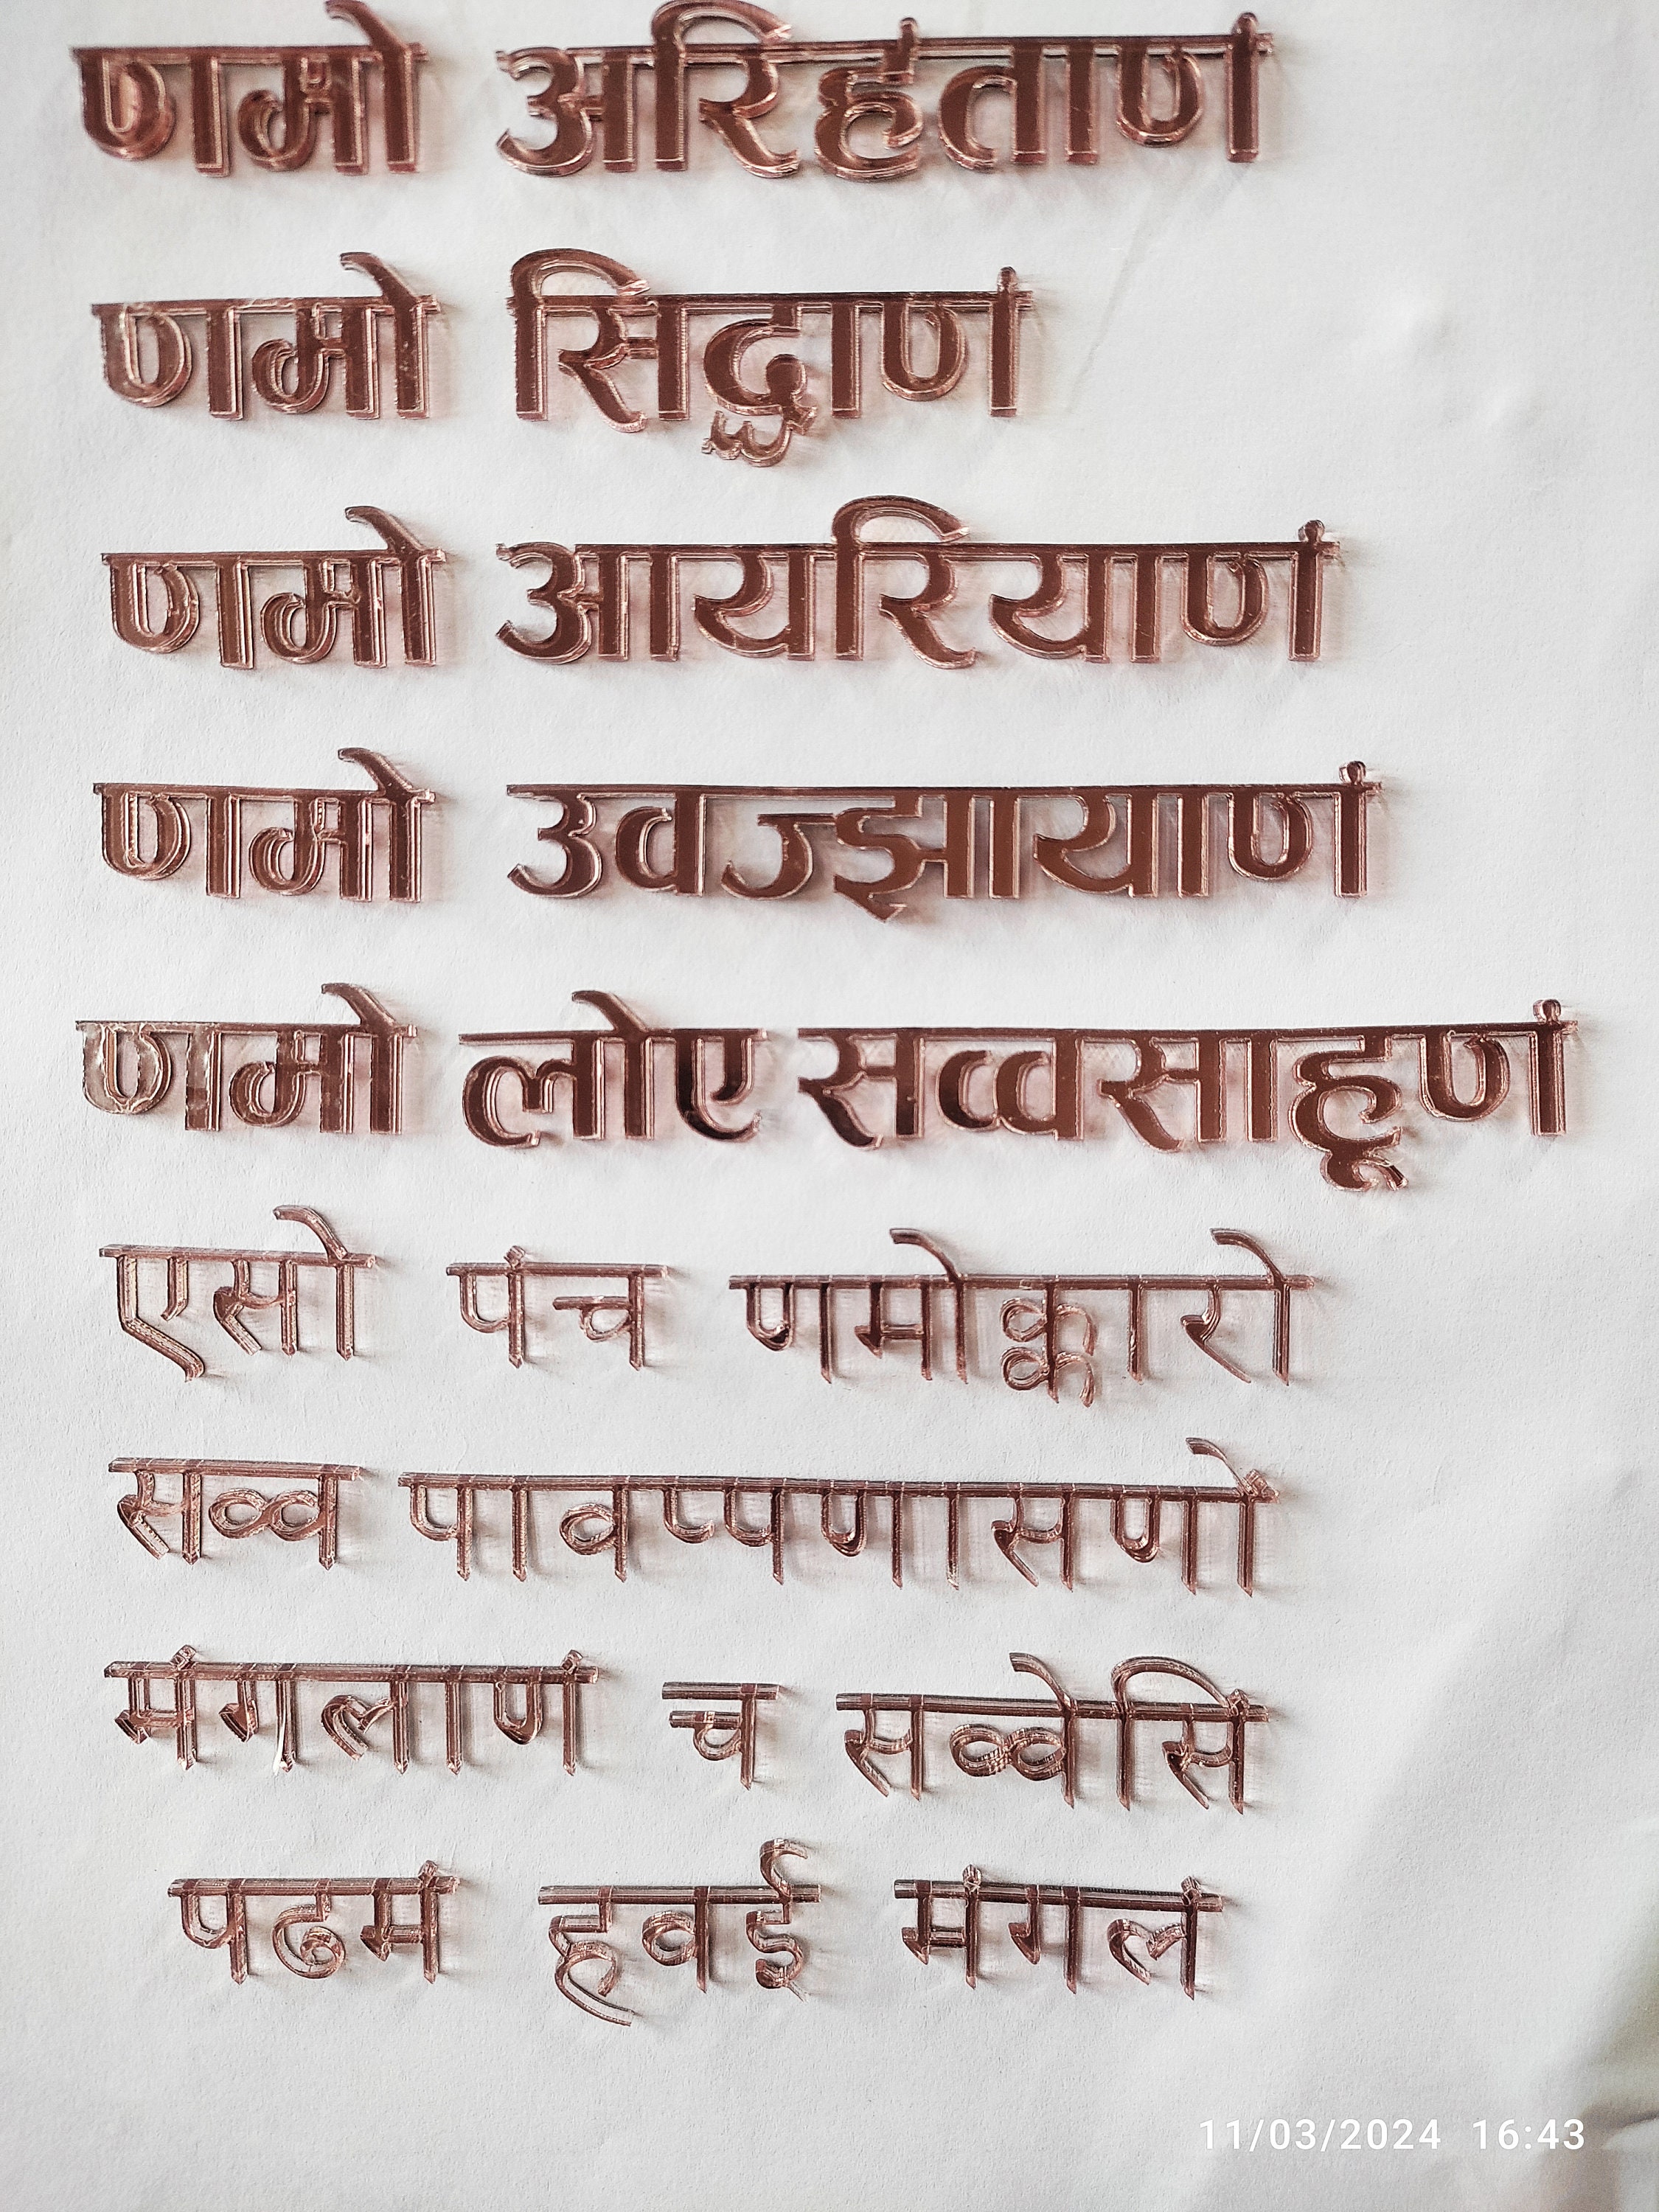 णमो अरिहंताणं
णमो सिद्धाणं
णमो आयरियाणं
णमो उवज्झायाणं
णमो लोए सव्वसाहूणं
एसो पंच णमोक्कारो
सव्व पावप्पणासणो
मंगलाणं च सव्वेसिं
पढमं हवई मंगलं
11/03/2024 16:43